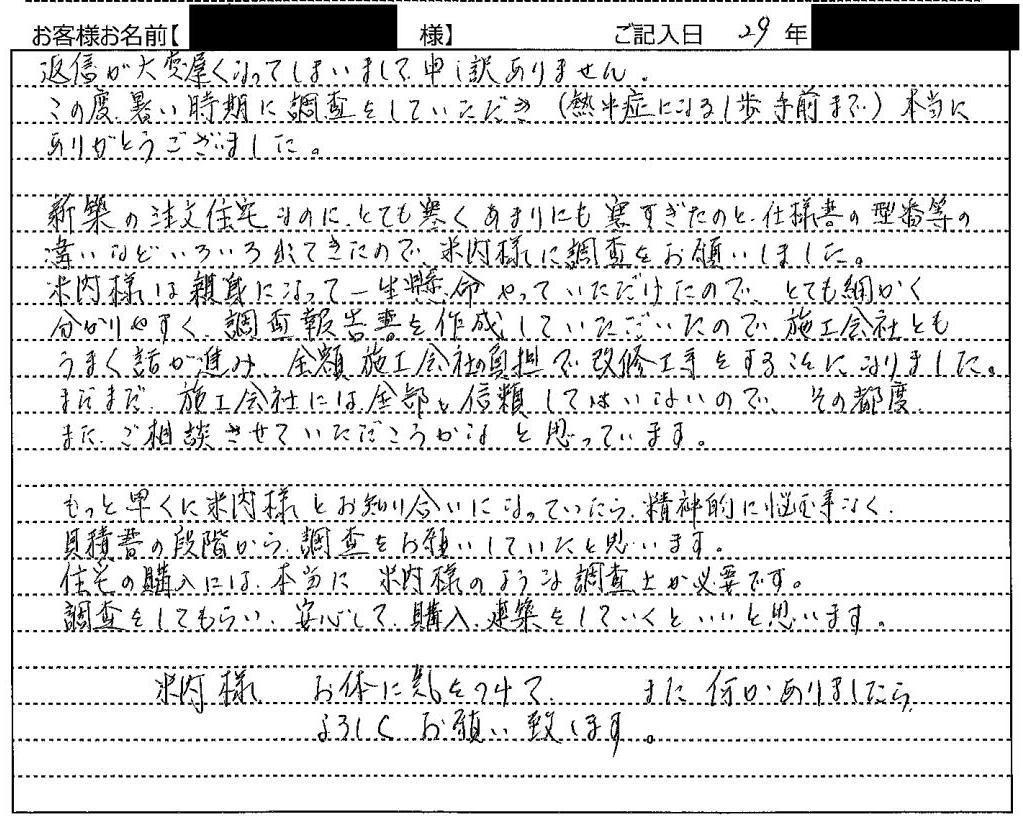 お客様お名前【 様】 ご記入日 29年
返信が大変遅くなってしまいまして、申し訳ありません。
この度、暑い時期に調査をしていただき（熱中症になる1歩手前まで）本当に
ありがとうございました。
新築の注文住宅なのに、とても寒くあまりにも寒すぎたのと、仕様書の型番等の
違いなどいろいろ出てきたので、米内様に調査をお願いしました。
米内様は親身になって一生懸命やっていただけたので、とても細かく
分かりやすく、調査報告書を作成していただいたので、施工会社とも
うまく話が進み、全額施工会社の負担で改修工事をすることになりました。
まだまだ、施工会社には全部も信頼してはいないので、その都度、
また、ご相談させていただこうかなと思っています。
もっと早くに米内様とお知り合いになっていたら、精神的に悩む事なく、
見積書の段階から、調査をお願いしていたと思います。
住宅の購入には、本当に米内様のような調査士が必要です。
調査をしてもらい、安心して、購入、建築をしていくといいと思います。
米内様 お体に気をつけて、 また何かありましたら、
よろしくお願い致します。